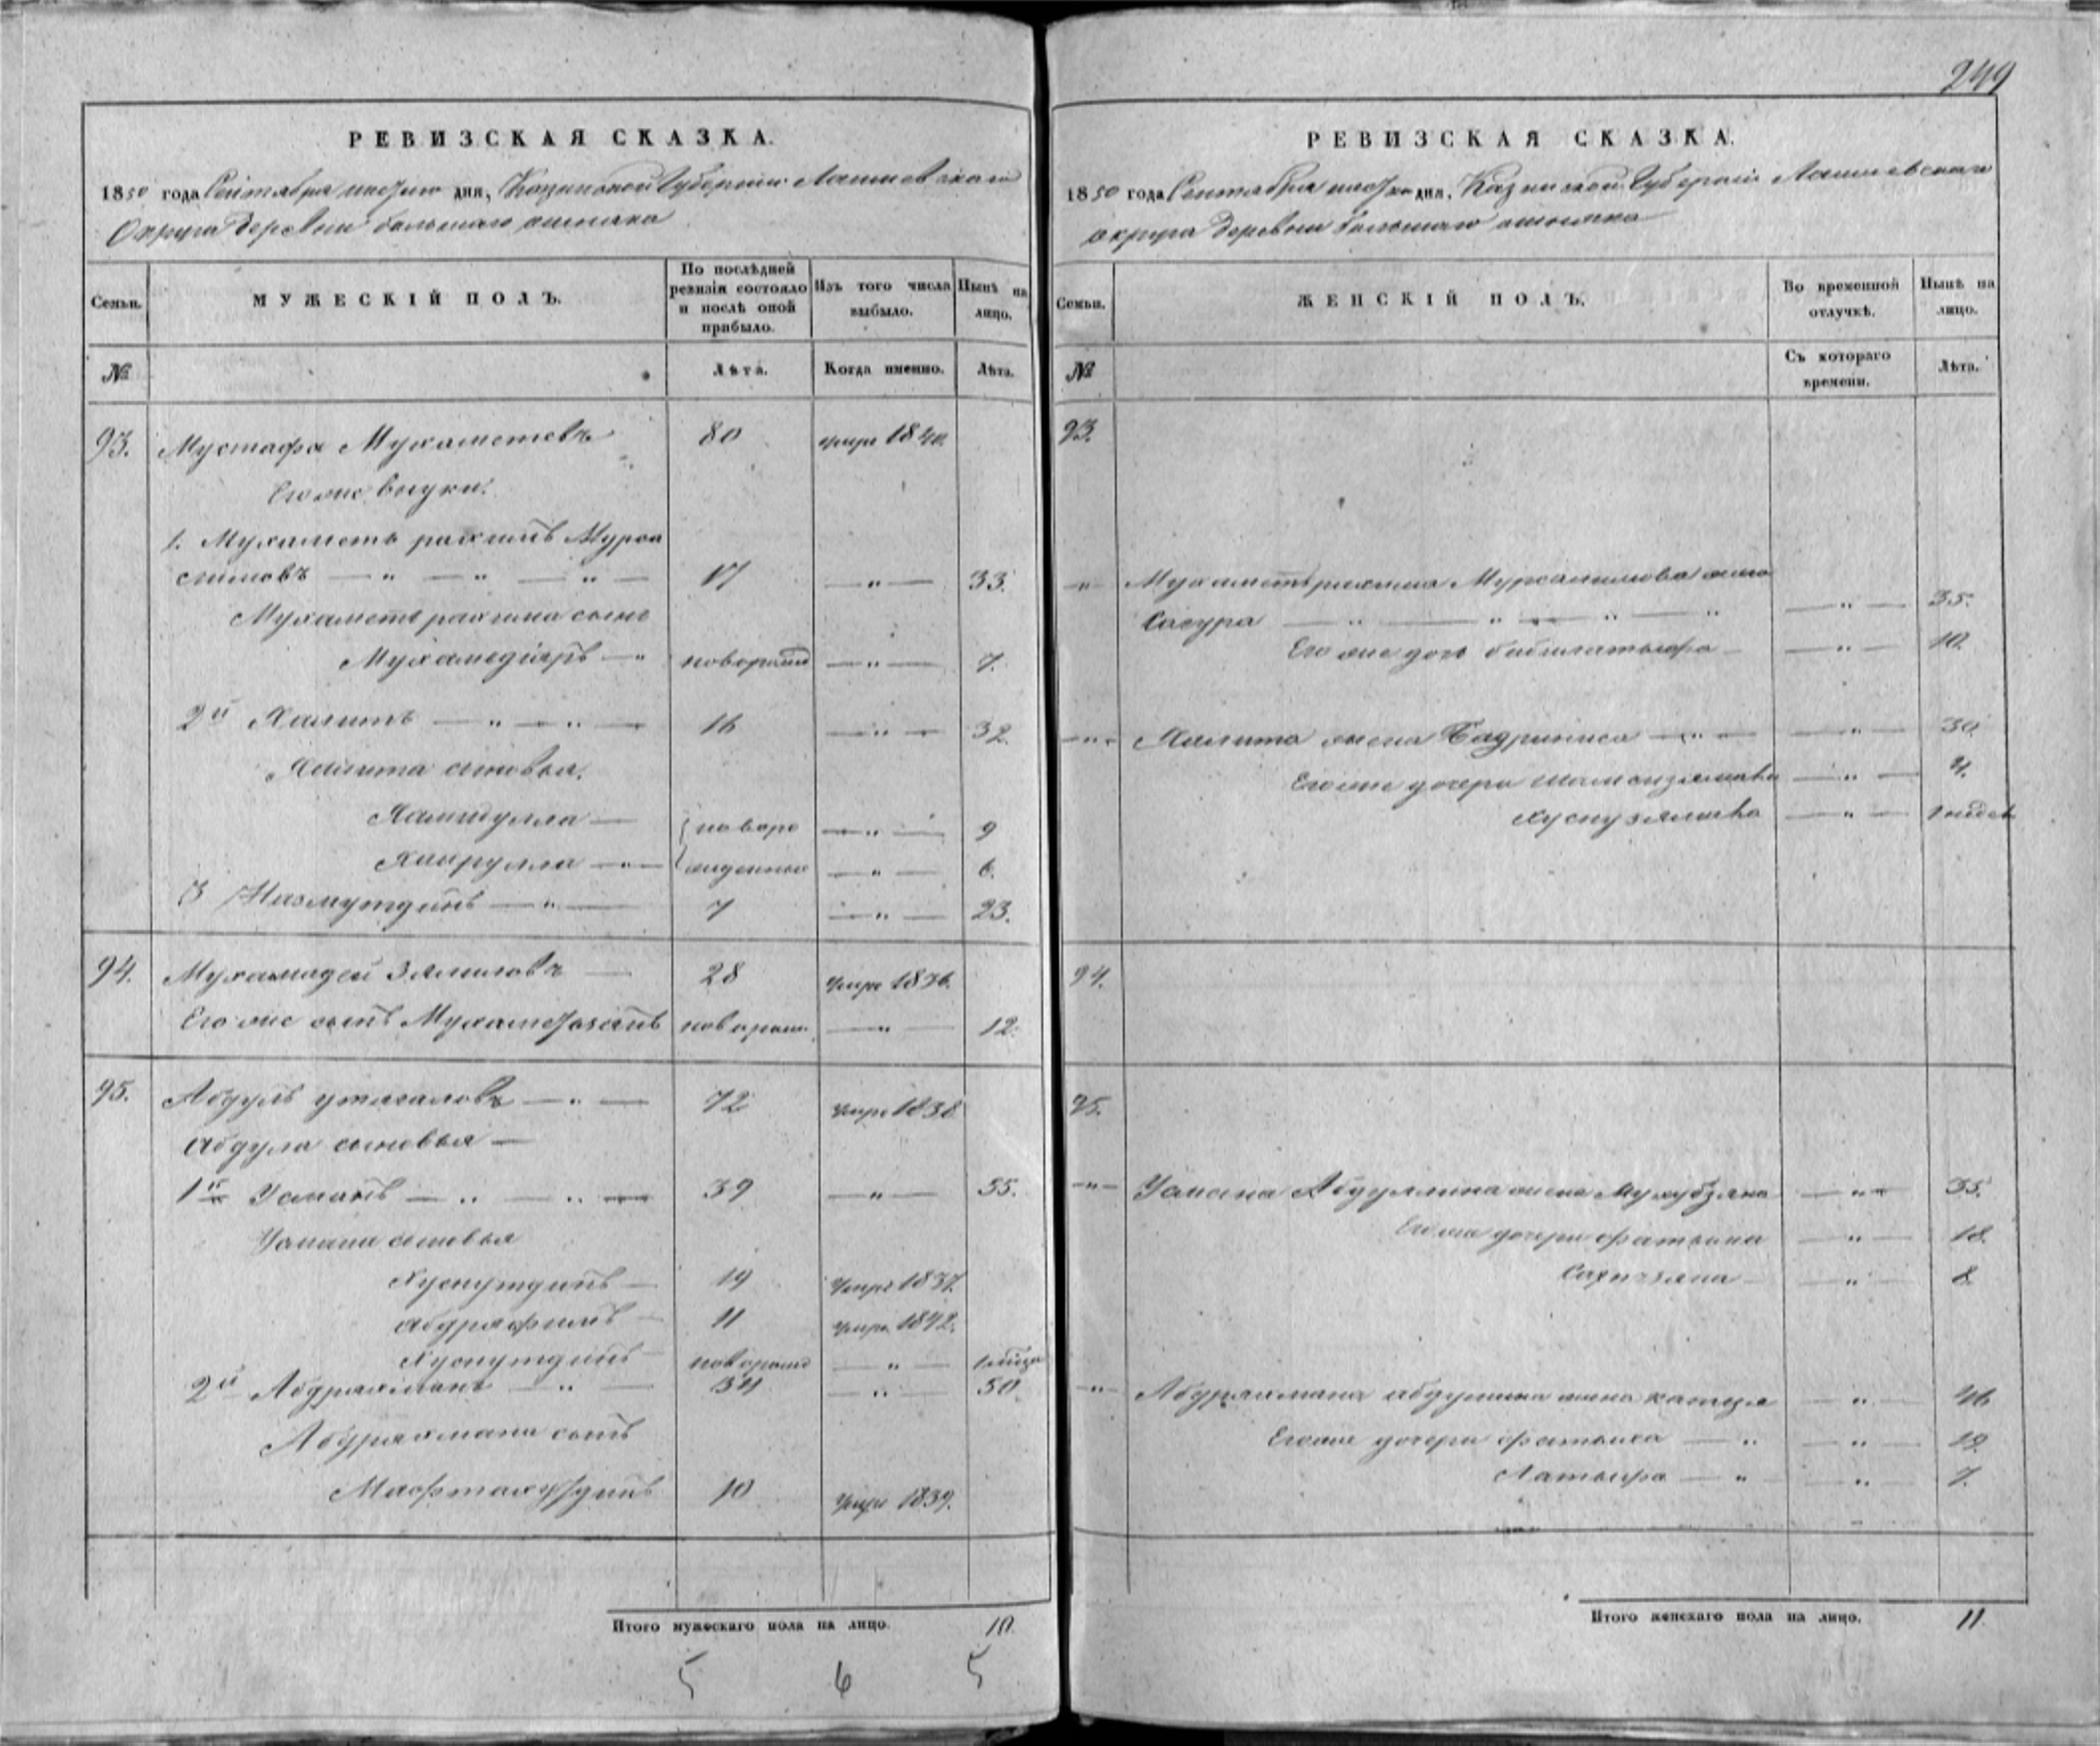 249
РЕВИЗСКАЯ СКАЗКА.
1850 года Сентября дня, Казанской Губернии Лаишевскаго
Округа Деревни большаго ошняка
Семьи.
МУЖЕСКІЙ ПОЛЪ.
По послѣдней ревизіи состояло и послѣ оной прибыло.
Изъ того числа выбыло.
Нынѣ на лицо.
№
Лѣта.
Когда именно.
Лѣта.
93. Мустафа Мухаметевъ 80 умре 1840.
Его же внуки.
1. Мухаметь рахимъ Мурса
лимовъ — " — " — " — 17 — " — 33.
Мухаметь рахима сынъ
Мухамедіяръ — " новорожд — " — 7.
2й Халитъ — " — " — 16 — " — 32.
Халита сыновья.
Хамидулла — новоро — " — 9
Хайрулла — " — жденные — " — 6.
3 Назмутдинъ — " — 7 — " — 23.
94. Мухамадей Зялиловъ — 28 Умре 1836.
Его же сынъ новорожд. — " — 12.
95. Абдулъ утягановъ — " — 72 Умре 1838
Абдула сыновья —
1й Усманъ — " — " — 39 — " — 55.
Усмана сыновья
Хуснутдинъ — 19 Умре 1837.
Абдряфикъ — 11 Умре 1842.
Хуснутдинъ — новорожд — " —
2й Абдряхманъ — " — 34 — " — 50.
Абдряхмана сынъ
10 Умре 1839.
Итого мужескаго пола на лицо. 10.
5 6 5
РЕВИЗСКАЯ СКАЗКА.
1850 года Сентября дня, Казанской Губерніи Лаишевскаго
округа Деревни большаго ошняка
Семьи.
ЖЕНСКІЙ ПОЛЪ.
Во временной отлучкѣ.
Нынѣ на лицо.
№
Съ котораго времени.
Лѣта.
93.
— " — Мухаметьрахима Мурсалимова жена
Сагура — " — " — " — " — " — 35.
Его же дочь — " — 10.
— " — Халита жена Бадриниса — " — — " — 30.
Его же дочери — " — 4.
— " —
94.
95.
— " — Усмана Абдуллина жена — " — 35.
Его же дочери — " — 18.
— " — 8.
— " — Абдряхмана абдулина жена — " — 46
Его же дочери — " — " — 19.
Латыфа — " — " — 7.
Итого женскаго пола на лицо. 11.